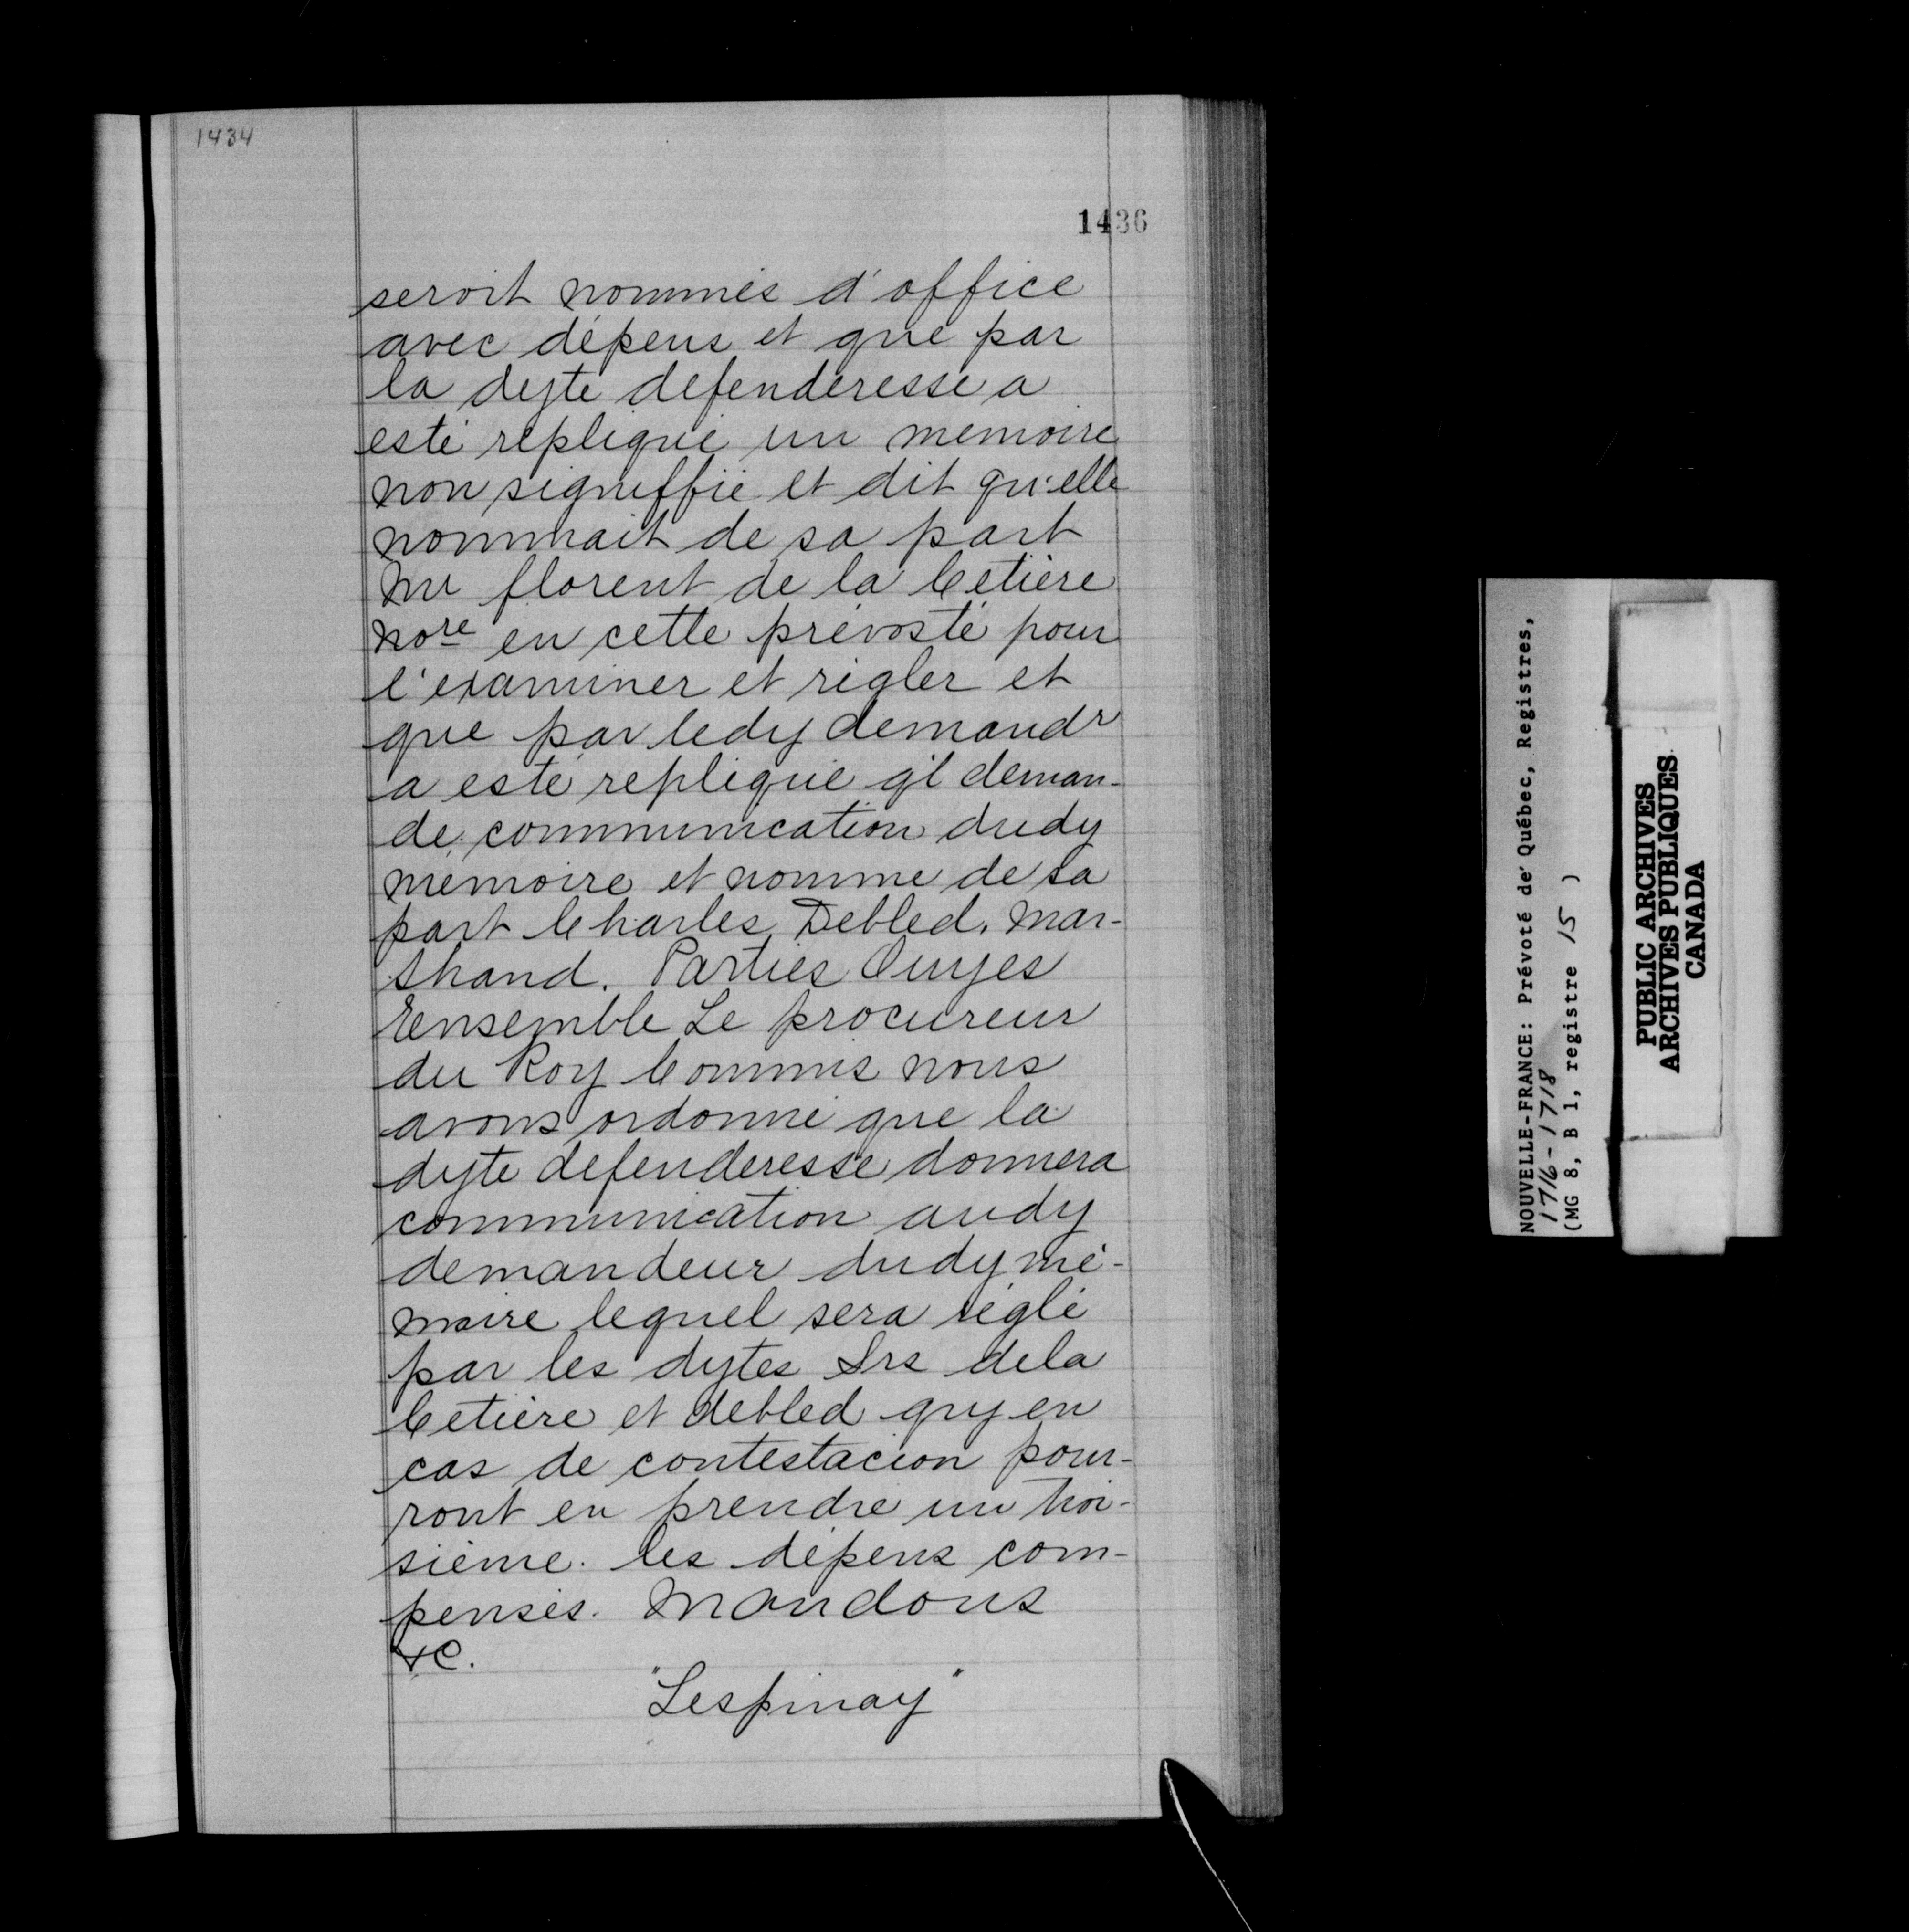 1434
1436
seroit nommés d'office
avec dépens et que par
la dyte defenderesse a
esté repliqué un memoire
non signiffié et dit qu'elle
nommait de sa part
Mr florent de la Cetière
nore en cette prévosté pour
l'examiner et régler et
que par ledy demandr
a esté repliqué q'il deman-
de communication dudy
mémoire et nomme de sa
part Charles Debled. Mar-
chand. Parties Ouyes
Ensemble Le procureur
du Roy Commis nous
avons ordonné que la
dyte defenderesse donnera
communication audy
demandeur dudy mé-
moire lequel sera réglé
par les dytes Srs dela
Cetière et debled quy en
cas de contestacion pour-
ront en prendre un troi-
sième. les dépens com-
pensés. Mandons
&c.
"Lespinay"
NOUVELLE-FRANCE: Prévoté de Québec, Registres,
1716-1718
(MG 8, B 1, registre 15 )
PUBLIC ARCHIVES
ARCHIVES PUBLIQUES
CANADA